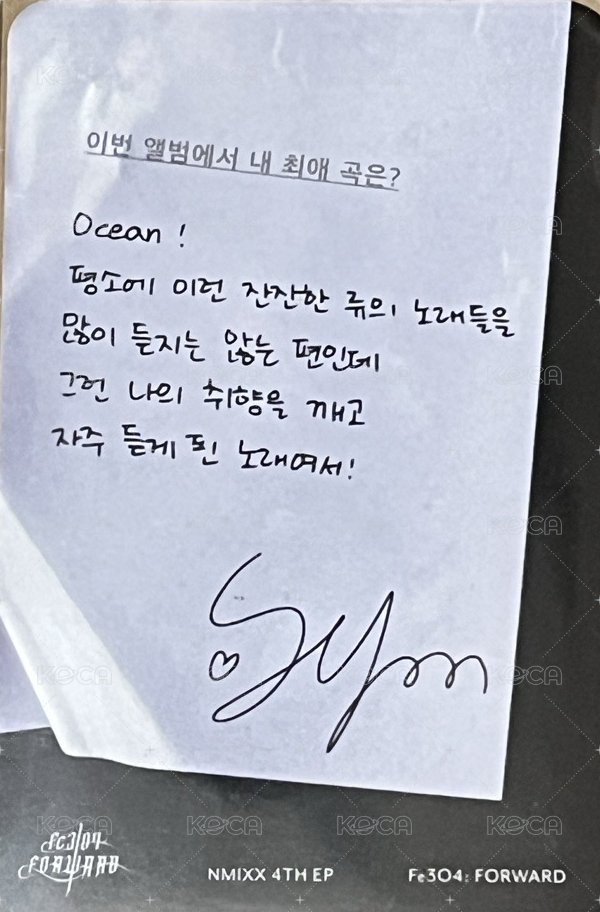 이번 앨범에서 내 최애 곡은?
Ocean !
평소에 이런 잔잔한 류의 노래들을
많이 듣지는 않는 편인데
그런 나의 취향을 깨고
자주 듣게 된 노래여서!
Fe3O4
FORWARD
NMIXX 4TH EP
Fe3O4: FORWARD
KOCA